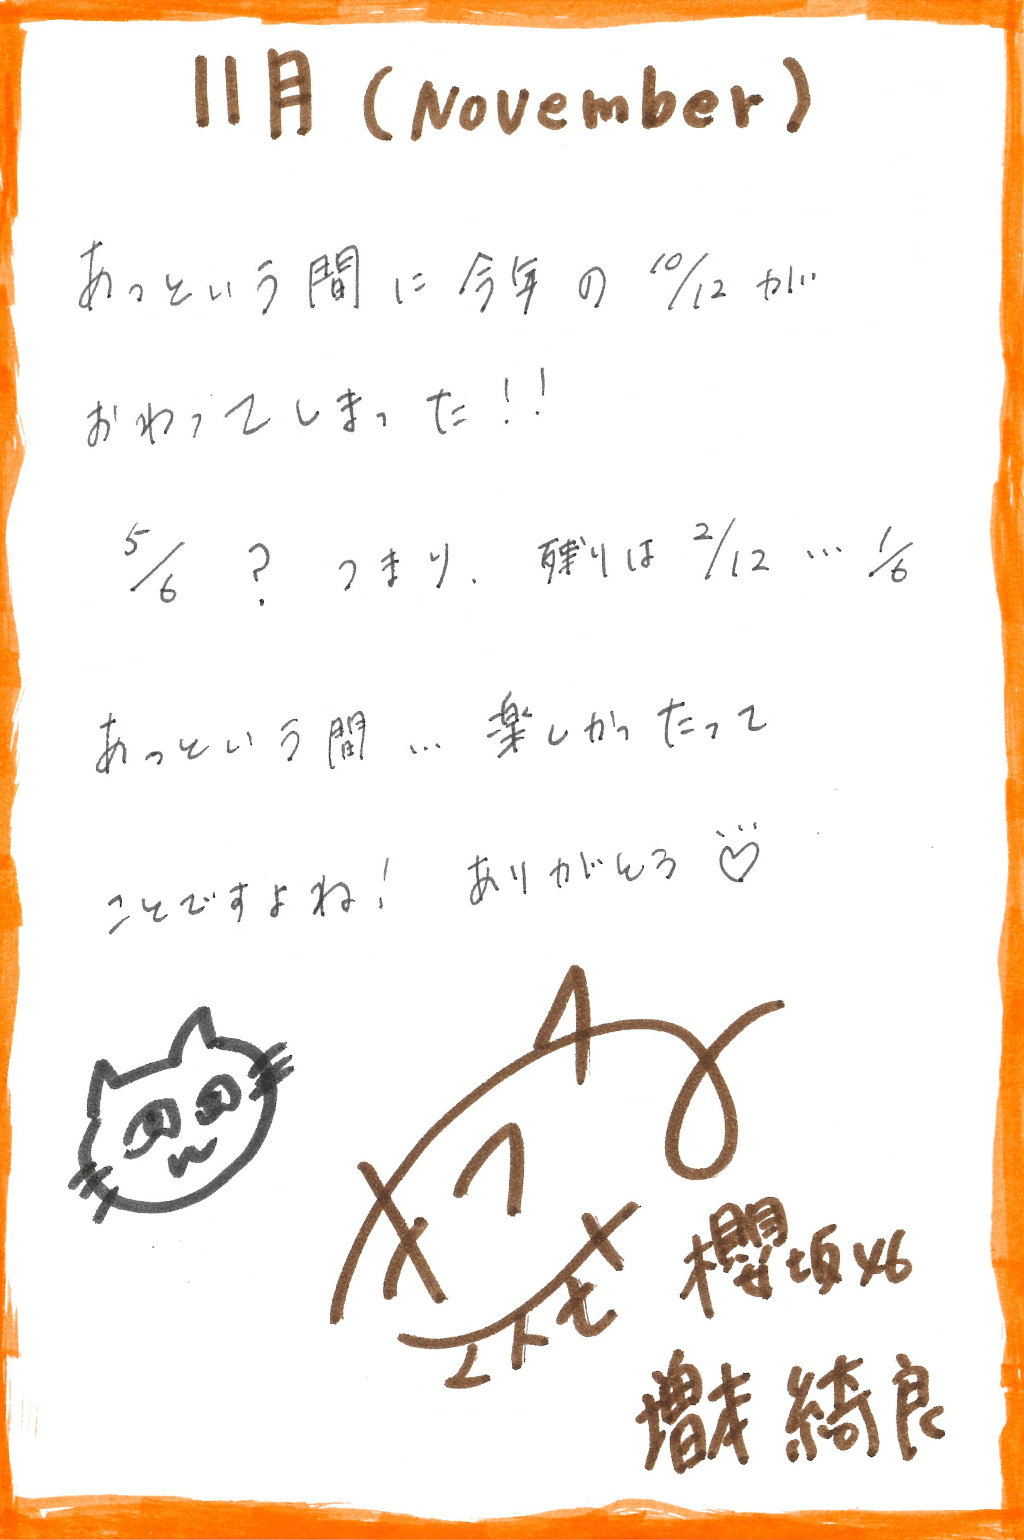 11月(November)
あっという間に今年の10/12が
おわってしまった!!
5/6?つまり、残りは2/12…1/6
あっという間…楽しかったって
ことですよね!ありがとう♡
櫻坂46
増本綺良